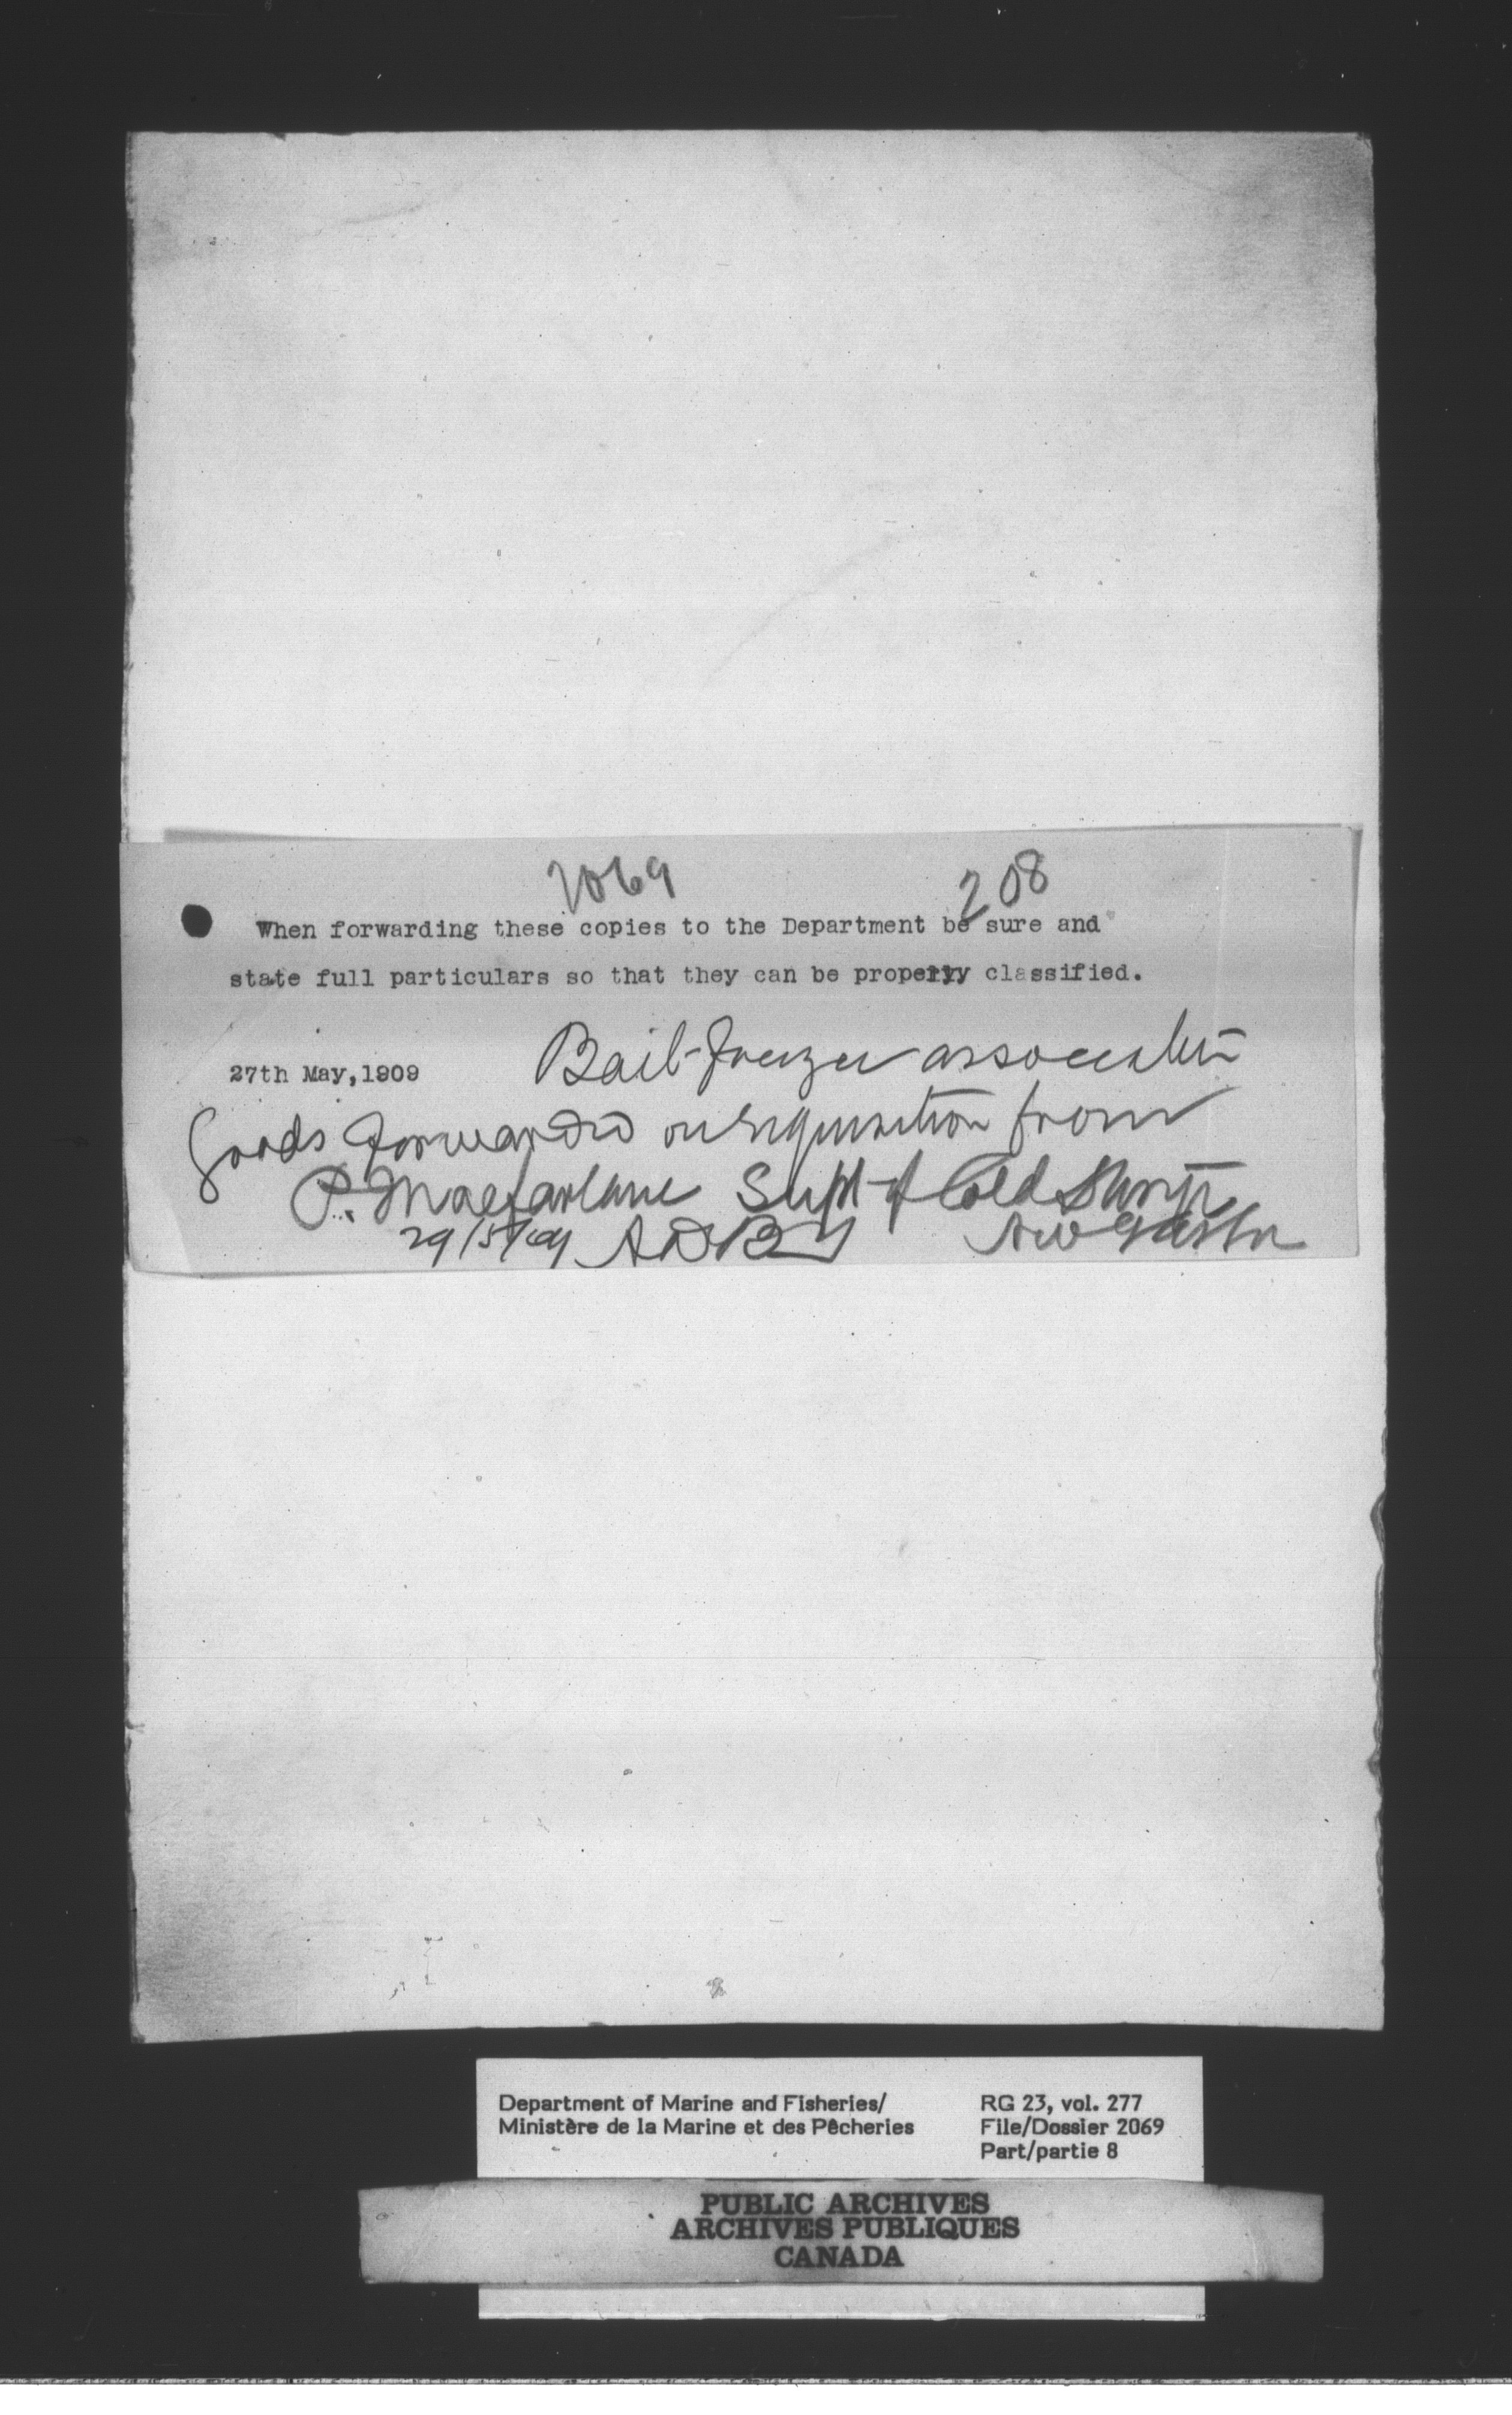 2069 208
When forwarding these copies to the Department be sure and
state full particulars so that they can be properly classified.
27th May, 1909
Bait-freezer association
Goods forwarded on requisition from
P. Macfarlane Supt of Cold Storage
29/5/09
Department of Marine and Fisheries/
Ministère de la Marine et des Pêcheries
RG 23, vol. 277
File/Dossier 2069
Part/partie 8
PUBLIC ARCHIVES
ARCHIVES PUBLIQUES
CANADA